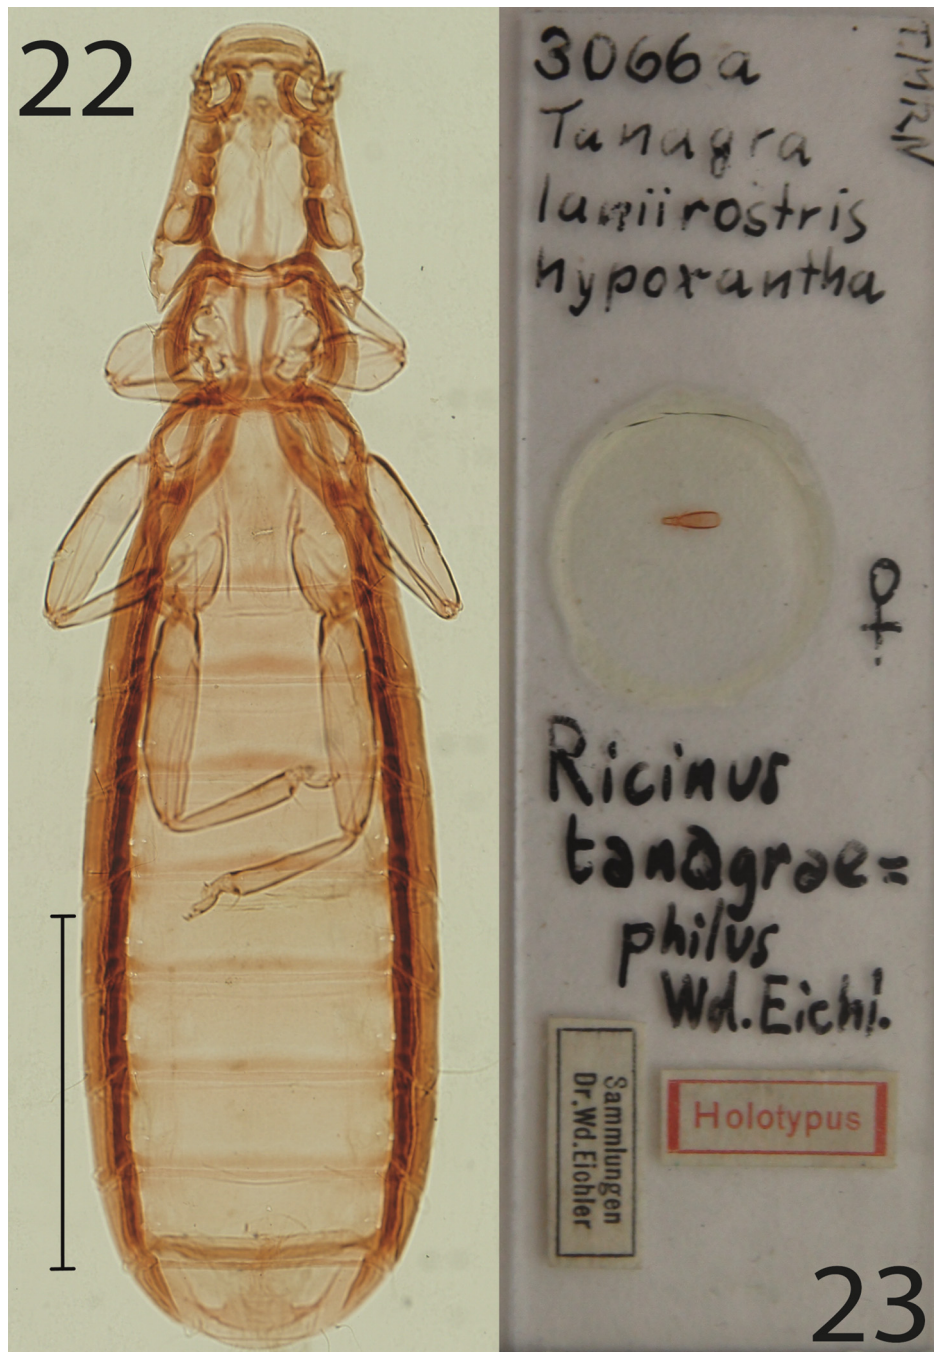 22
3066a
Tanagra
laniirostris
hypoxantha
♀.
Ricinus
tanagrae=
philus
Wd. Eichl.
Sammlungen
Dr. Wd. Eichler
Holotypus
23